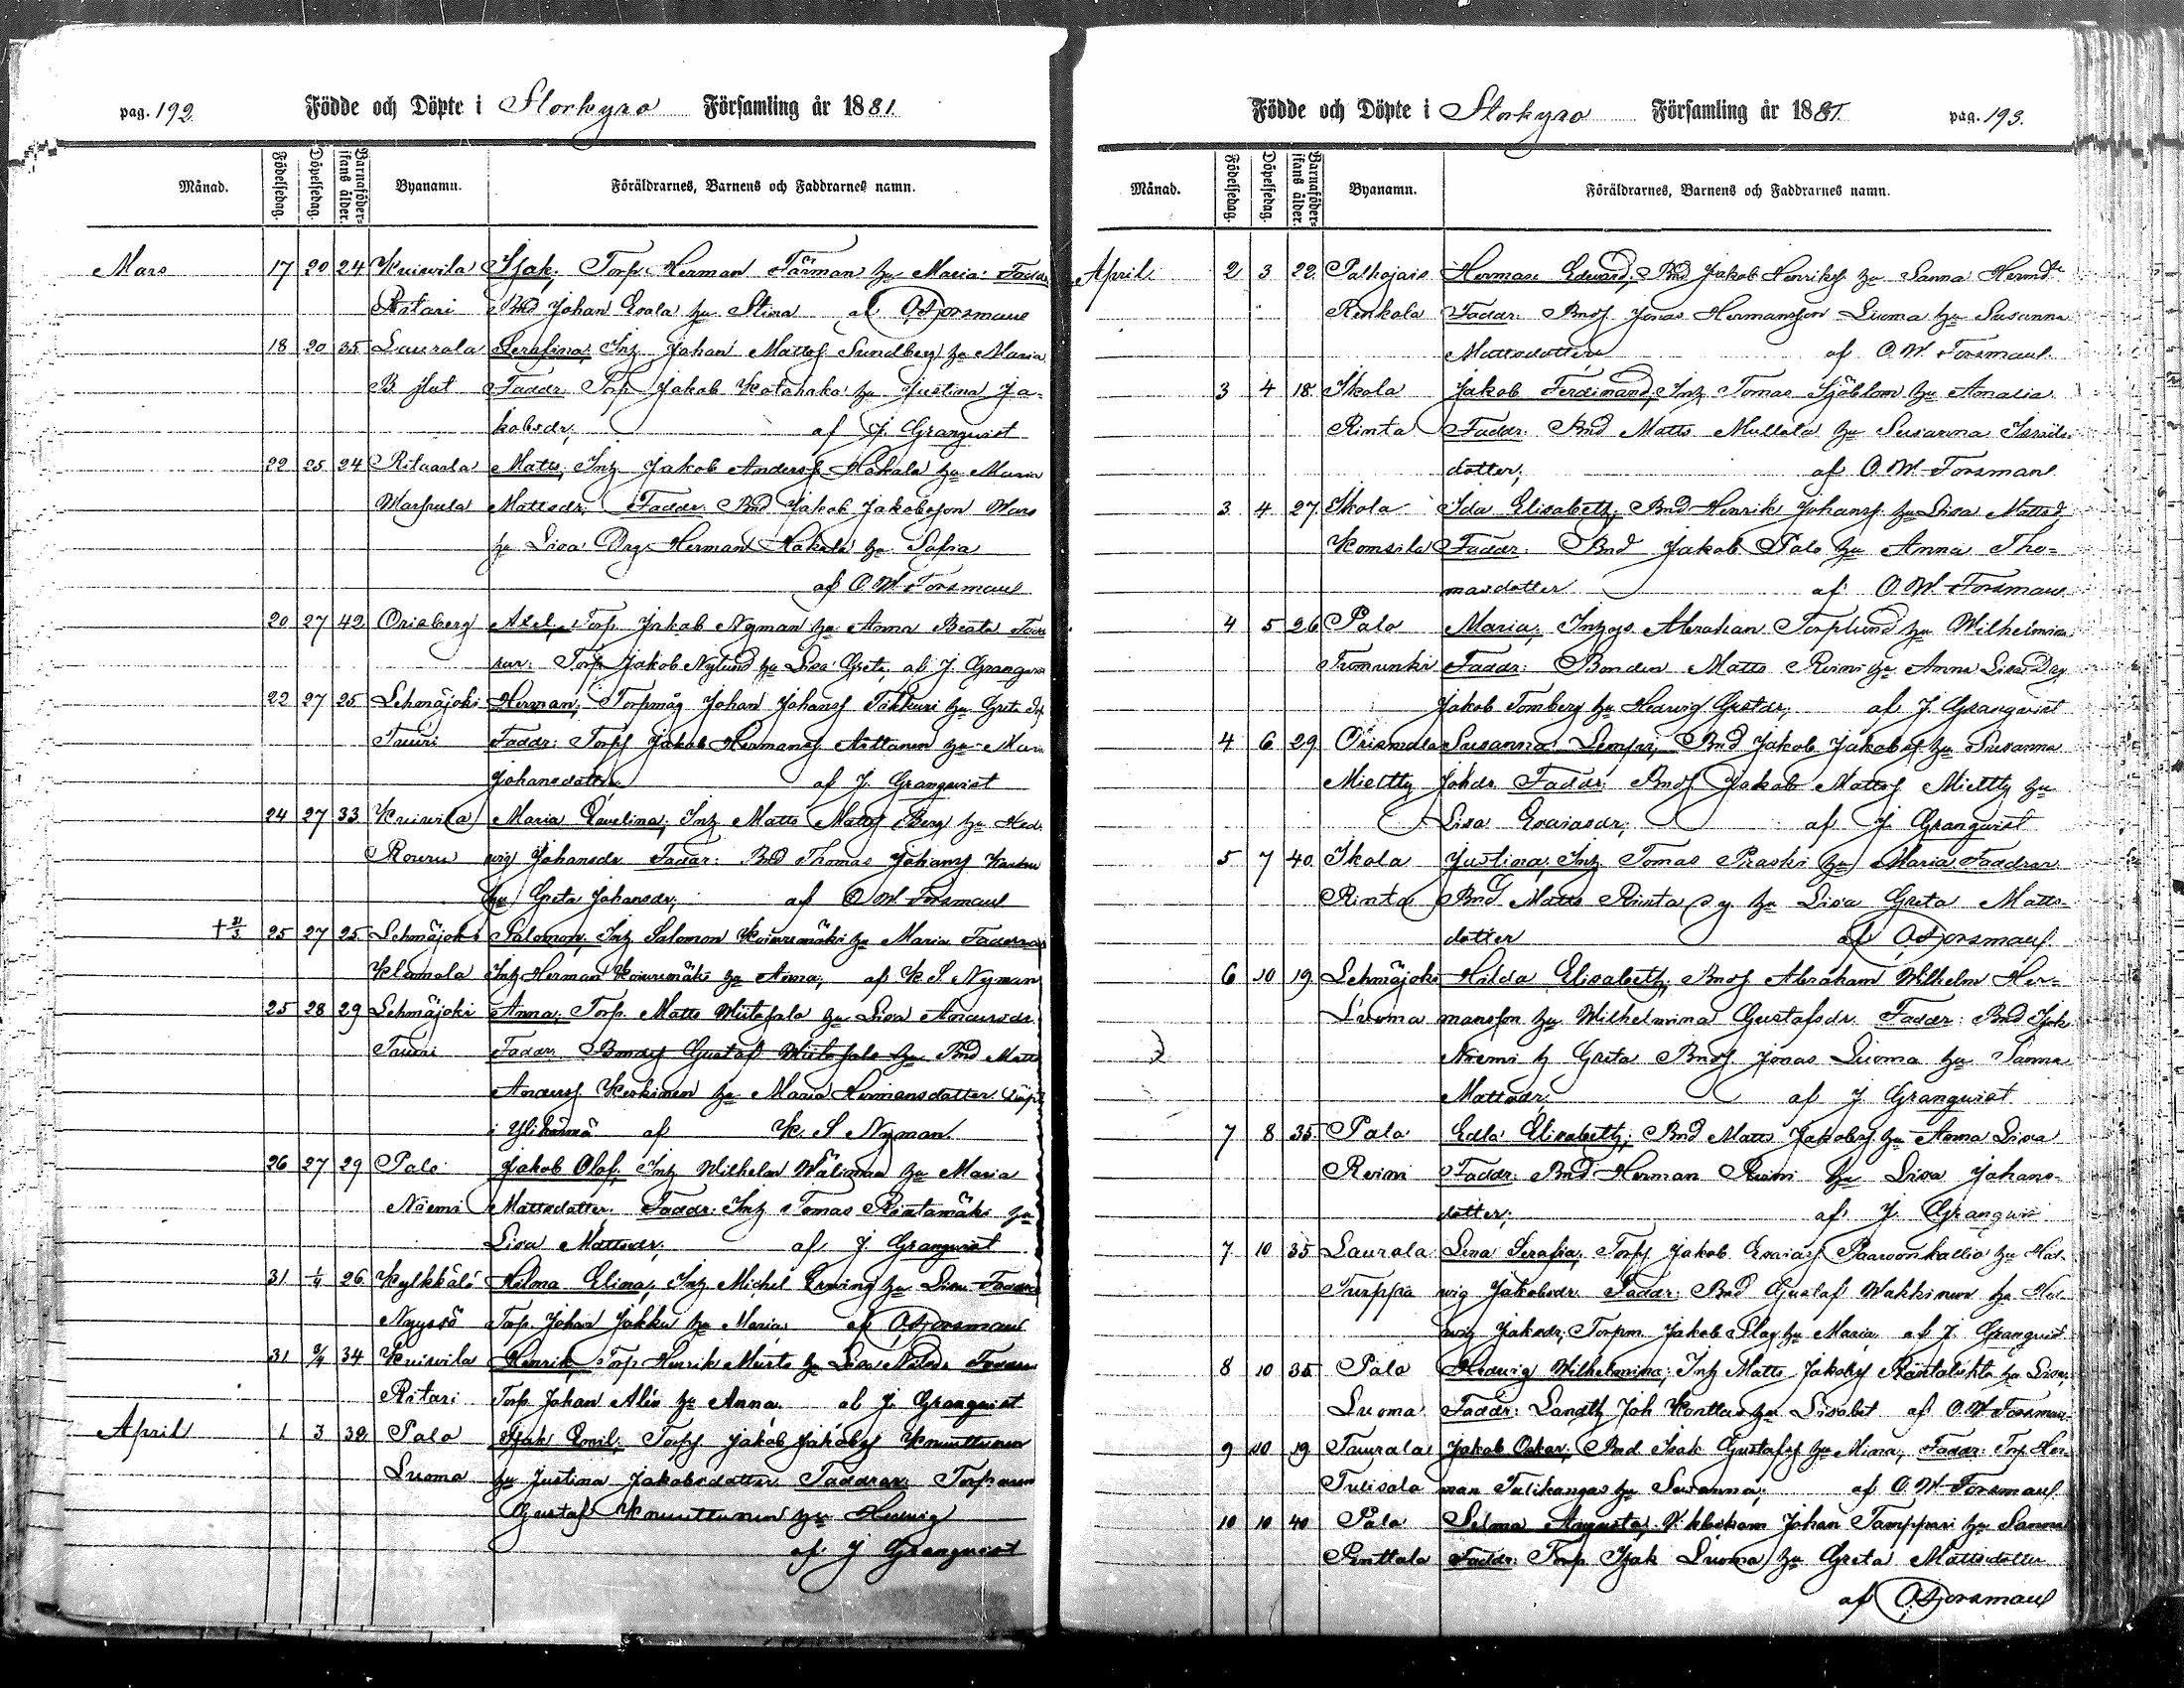 pag. 192.
Födde och Döpte i Storkyro Församling år 1881.
Månad. Födelsedag. Döpelsedag. Barnaföderskans ålder. Byanamn. Föräldrarnes, Barnens och Faddrarnes namn.
Mars 17 20 24 Kuivila Isak, Torp. Herman Färman hu Maria: Faddr
Ritari Bnd Johan Evala hu Stina af O.W. Forsman
18 20 35 Laurola Serafina; Inh Johan Mattsf Sundberg hu Maria
Faddr. Torp Jakob Katahako hu Justina Ja-
kobsdr; af J. Granqvist
22 25 24 Ritaala Matts; Inh Jakob Andersf Hakala hu Maria
Marsula Mattsdr; Faddr. Bnd Jakob Jakobsson Mars
hu Lisa Drg. Herman Hakala hu Sofia
af O. W. Forsman
20 27 42 Orisberg Axel; Torp. Jakob Nyman hu Anna Beata
Torp Jakob Nylund hu Lisa Greta, af J. Granqvist
22 27 25 Lehmäjoki Herman; Torpmåg Johan Johansf Takkuri hu Greta
Tuuri Faddr: Torpf Jakob Hermansf Mattanen hu Maria
Johansdotter af J. Granqvist
24 27 33 Kuivila Maria Evelina; Inh Matts Mattsf Berg hu Hed-
Rouru wig Johansdr Faddr: Bnd Thomas Johansf
hu Greta Johansdr; af O W Forsman
† 31/3 25 27 25 Lehmäjoki Salomon, Inh Salomon Koivumäki hu Maria Faddrar
Klemola Inh Herman Koivumäki hu Anna; af K S Nyman
25 28 29 Lehmäjoki Anna; Torp. Matts Wiitasala hu Lisa Andersdr.
Tuuri Faddr. Bondes Gustaf Wiitasala hu Bnd Matts
Andersf Keskinen hu Maria Hermansdotter. Döpt
i Ylihärmä af K. S Nyman.
26 27 29 Palo Jakob Olof; Inh Wilhelm Wälimaa hu Maria
Niemi Mattsdotter. Faddr. Inh Tomas Rintamäki hu
Lisa Mattsdr; af J Granqvist
31 1/4 26 Kylkkälä Hilma Elina; Inh Michel Erwing hu Lisa Faddr
Nyyssö Torp. Johan Jakku hu Maria, af O.W. Forsman
31 34 Kuivila Henrik; Torp Henrik Mursto hu Lisa Faddrar
Ritari Torp Johan Alén hu Anna af J. Granqvist
April 1 3 32 Palo Isak Emil; Torpf. Jakob Jakobsf Knuuttunen
Luoma hu Justina Jakobsdotter Faddrar. Torparen
Gustaf Knuuttunen hu Hedwig
af J Granqvist
Födde och Döpte i Storkyro Församling år 1881. pag. 193.
Månad. Födelsedag. Döpelsedag. Barnaföderskans ålder. Byanamn. Föräldrarnes, Barnens och Faddrarnes namn.
April 2 3 22 Palhojais Herman Edvard; Bnd Jakob Henriksf hu Sanna Hermdr
Renkola Faddr. Bndf. Jonas Hermansson Luoma hu Susanna
Mattsdotter af O. W. Forsman.
3 4 18 Ikola Jakob Ferdinand; Inh Tomas Sjöblom hu Amalia
Rinta Faddr. Bnd Matts Mullola hu Susanna Israels-
dotter; af O. W. Forsman
3 4 27 Ikola Ida Elisabeth; Bnd Henrik Johansf hu Lisa Mattsd
Komsila Faddr. Bnd Jakob Palo hu Anna Tho-
masdotter af O. W. Forsman
4 5 26 Palo Maria; Inhys Abraham Torplund hu Wilhelmina
Tramunki Faddr: Bonden Matts Reini hu Anna Lisa Drg
Jakob Tomberg hu Hedwig Gustdr; af J. Granqvist
4 6 29 Orismala Susanna Lempi; Bnd Jakob Jakobsf hu Susanna
Mieltty Johdr. Faddr: Bndf Jakob Mattsf Mieltty hu
Lisa Esaiasdr; af J Granqvist
5 7 40 Ikola Justina; Inh Tomas Piraski hu Maria Faddrar
Rinta Bnd Matts Rinta hu Lisa Greta Matts-
dotter af O.W. Forsman.
6 10 19 Lehmäjoki Hilda Elisabeth; Bndf Abraham Wilhelm Her-
Luoma mansson hu Wilhelmina Gustafsdr. Faddr: Bnd Isak
Niemi h Greta Bndf Jonas Luoma hu Sanna
Mattsdr. af J Granqvist
7 8 35 Palo Edla Elisabeth; Bnd Matts Jakobsf hu Anna Lisa
Reini Faddr: Bnd Herman Reini hu Lisa Johans-
dotter; af J. Granqvi
7 10 35 Laurola Lina Serafia; Torpf Jakob Esaiasf Paavonkallio hu Hed-
Turppa wig Jakobsdr. Faddr: Bnd Gustaf Wakkinen hu Hed-
wig Jakobsdr; Torpm. Jakob Slag hu Maria af J. Granqvist
8 10 35 Palo Hedwig Wilhelmina; Inh Matts Jakobsf Rantalahti hu Lisa,
Luoma Faddr: Landth Joh Konttas hu Lisabet af O. W. Forsman
9 10 19 Taurala Jakob Oskar; Bnd Isak Gustafsf hu Mina, Faddr: Torp. Her-
Tulisala man Tulikangas hu Susanna; af O. W. Forsman
10 10 40 Palo Selma Augusta; Johan Tamppari hu Sanna
Penttala Faddr. Torp. Isak Luoma hu Greta Mattsdotter
af O.W. Forsman